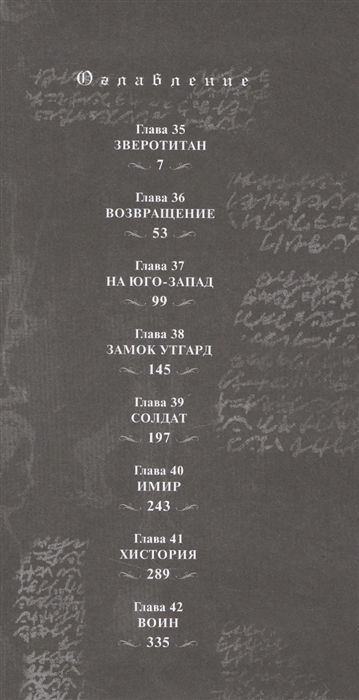 Оглавление
Глава 35
ЗВЕРОТИТАН
7
Глава 36
ВОЗВРАЩЕНИЕ
53
Глава 37
НА ЮГО-ЗАПАД
99
Глава 38
ЗАМОК УТГАРД
145
Глава 39
СОЛДАТ
197
Глава 40
ИМИР
243
Глава 41
ХИСТОРИЯ
289
Глава 42
ВОИН
335